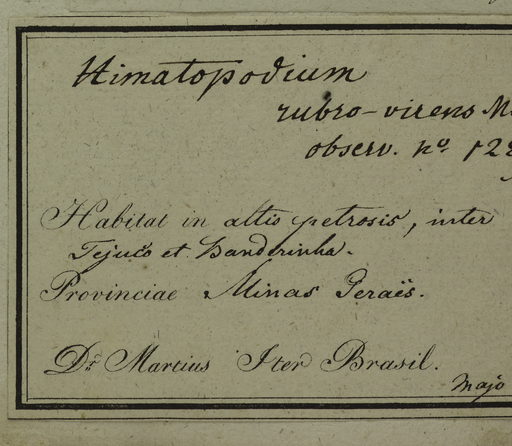 Himatopodium
rubro-virens M.
observ. no. 128
Habitat in altis petrosis, inter
Tejuco et Banderinha.
Provinciae Minas Geraës.
Dr. Martius Iter Brasil.
Majo